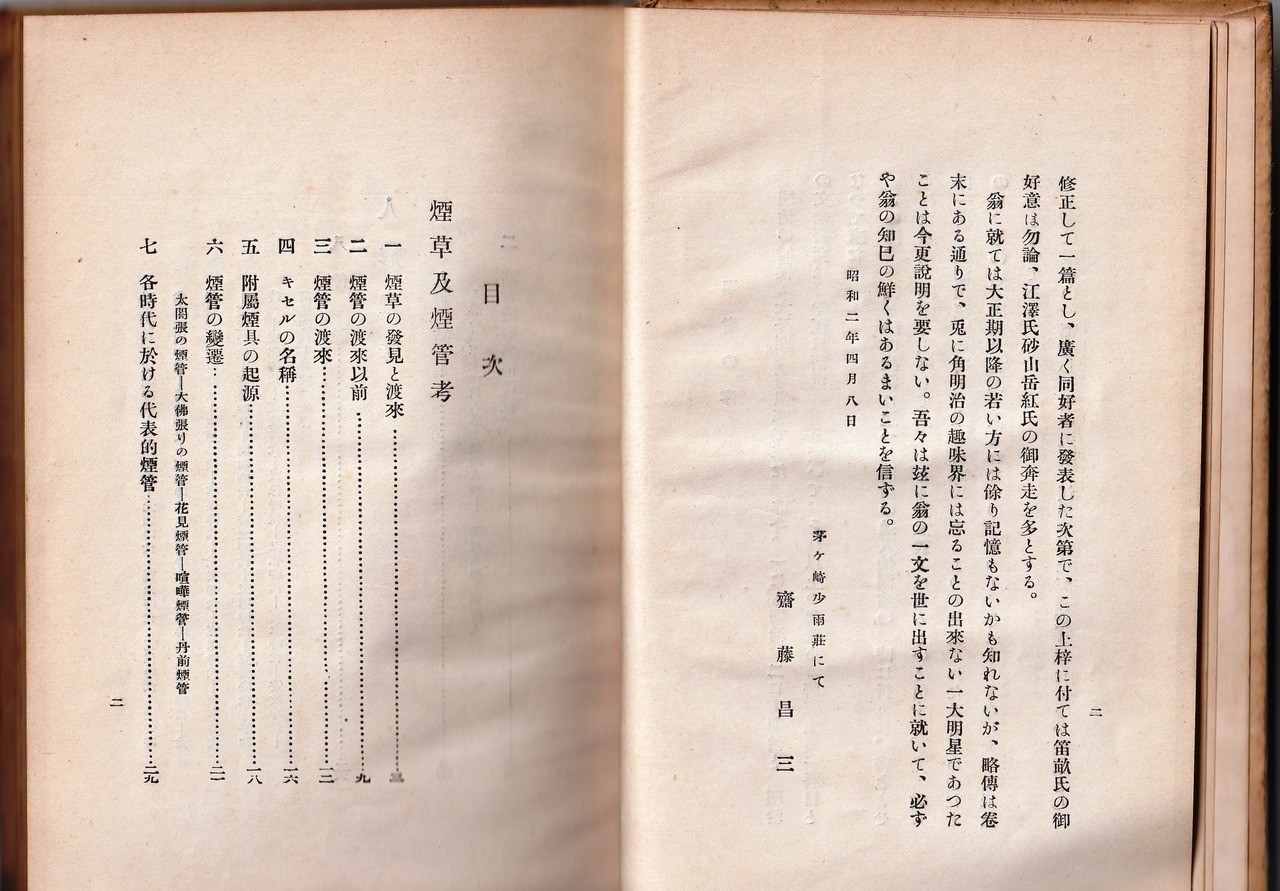 修正して一篇とし、廣く同好者に發表した次第で、この上梓に付ては笛畝氏の御
好意は勿論、江澤氏砂山岳紅氏の御奔走を多とする。
翁に就ては大正期以降の若い方には餘り記憶もないかも知れないが、略傳は卷
末にある通りで、兎に角明治の趣味界には忘ることの出來ない一大明星であつた
ことは今更說明を要しない。吾々は玆に翁の一文を世に出すことに就いて、必ず
や翁の知已の鮮くはあるまいことを信ずる。
昭和二年四月八日
茅ヶ崎少雨莊にて
齋藤昌三
二
目次
煙草及煙管考
一 煙草の發見と渡來……三
二 煙管の渡來以前……九
三 煙管の渡來……一二
四 キセルの名稱……一六
五 附屬煙具の起源……一八
六 煙管の變遷……二一
太閤張の煙管―大佛張りの煙管―花見煙管―喧嘩煙管―丹前煙管
七 各時代に於ける代表的煙管……二九
二